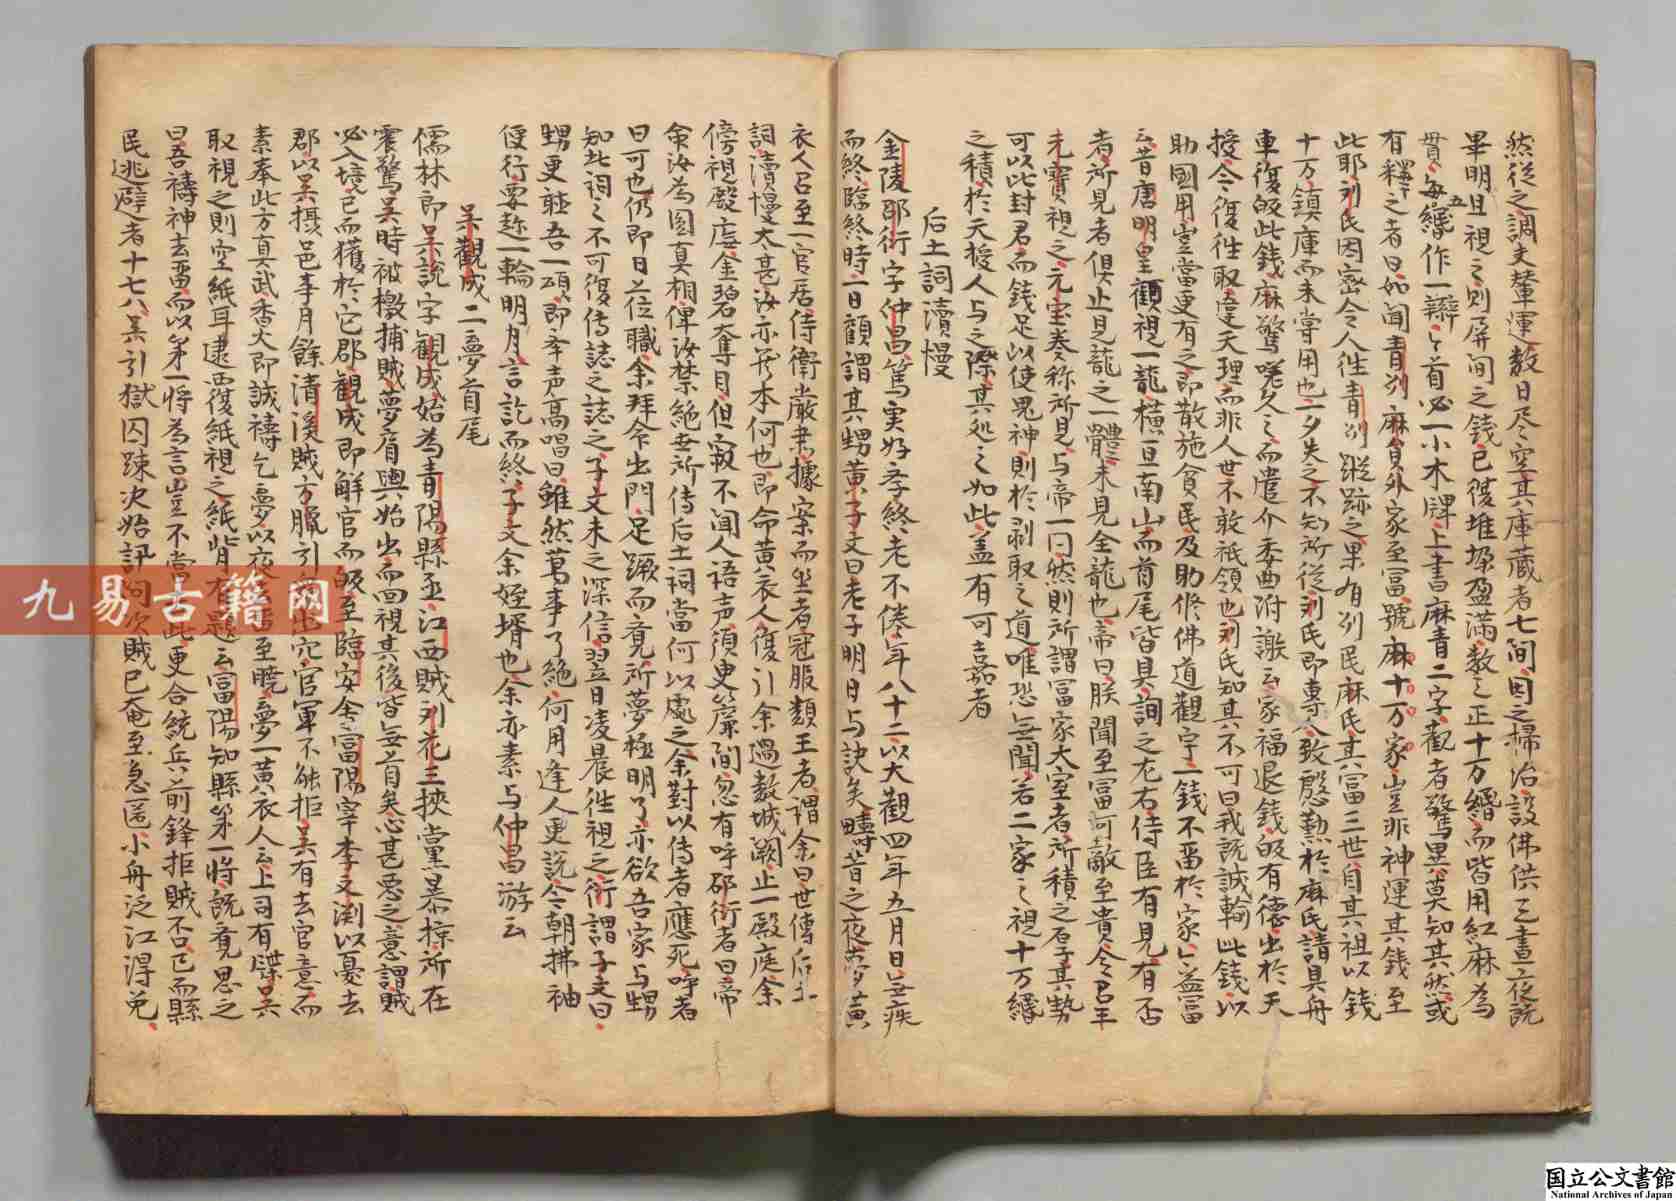 然從之調夫輦運數日尽空其庫藏者七間因之掃治設佛供三晝夜既
畢明旦視之則屏間之錢已復堆垜盈滿数之正十万緡而皆用紅麻為
貫每五緡作一辮辮首必一小木牌上書麻青二字觀者驚異莫知其然或
有釋之者曰如聞青州麻員外家至富號麻十万家豈非神運其錢至
此耶刘氏因密令人往青州蹤跡之果有州民麻氏其富三世自其祖以錢
十万鎮庫而未嘗用也一夕失之不知所從刘氏即專人致慇懃於麻氏請具舟
車復皈此錢麻驚嘆久之而遣介委曲附謝云家福退錢皈有德出於天
授今復徃取違天理而非人世不敢祗領也刘氏知其不可曰我既誠輸此錢以
助國用豈當更有之即散施貧民及助修佛道觀宇一錢不畱於家家益富
云昔唐明皇顧視一龍橫亘南山而首尾皆具詞之左右侍臣有見有否
者所見者俱止見龍之一體未見全龍也帝曰朕聞至富可敵至貴今召王
元寳視之元宝奏称所見与帝一同然則所謂富家大室者所積之厚其勢
可以比封君而錢足以使鬼神則於剥取之道唯恐無聞若二家之視十万緡
之積於天授人与之際其処之如此盖有可嘉者
后土詞瀆慢
金陵邵衍字仲昌篤実好孝終老不倦年八十二以大觀四年五月日無疾
而終臨終時一日顧謂其甥黄子文曰老子明日与訣矣疇昔之夜夢黄
衣人召至一官居侍衛嚴肅據案而坐者冠服類王者謂余曰世傳后土
詞瀆慢太甚汝亦㳟本何也即命黄衣人復引余過数城闕止一殿庭余
傍視殿廡金碧奪目但寂不聞人語声須臾簾間忽有呼邵衍者曰帝
命汝為圓真相俾汝禁絶世所传后土祠當何以處之余對以传者應死呼者
曰可也仍即日位職余拜命出門足蹶而覚所夢極明了亦欲吾家与甥
知此祠之不可復传誌之誌之子文未之深信翌日凌晨徃視之衍謂子文曰
甥更聴吾一頌即奉声高唱曰雖然萬事了絶何用逢人更説今朝拂袖
便行要趂一輪明月言訖而終子文余姪壻也余亦素与仲昌游云
吴觀成二夢首尾
儒林郎吴説字觀成始為青陽縣丞江西賊刘花三挾黨暴掠所在
震驚吴時被檄捕賊夢肩輿始出而回視其後皆無首矣心甚悪之意謂賊
必入境已而獲於它郡觀成即解官而皈至臨安会富陽宰李文渊以憂去
郡以吴攝邑事月餘清溪賊方臘引衆出穴官軍不能拒吴有去官意而
素奉此方真武香火即誠禱乞夢以夜至曉夢一黄衣人云上司有牒吴
取視之則空紙耳逮覆紙視之紙背有題云富陽知縣第一將既覚思之
曰吾禱神去畱而以第一将為言豈不當此更合統兵前鋒拒賊不已而縣
民逃避者十七八吴引獄囚踈決始訊問次賊已奄至急匿小舟泛江淂免
九易古籍网
国立公文書館
National Archives of Japan